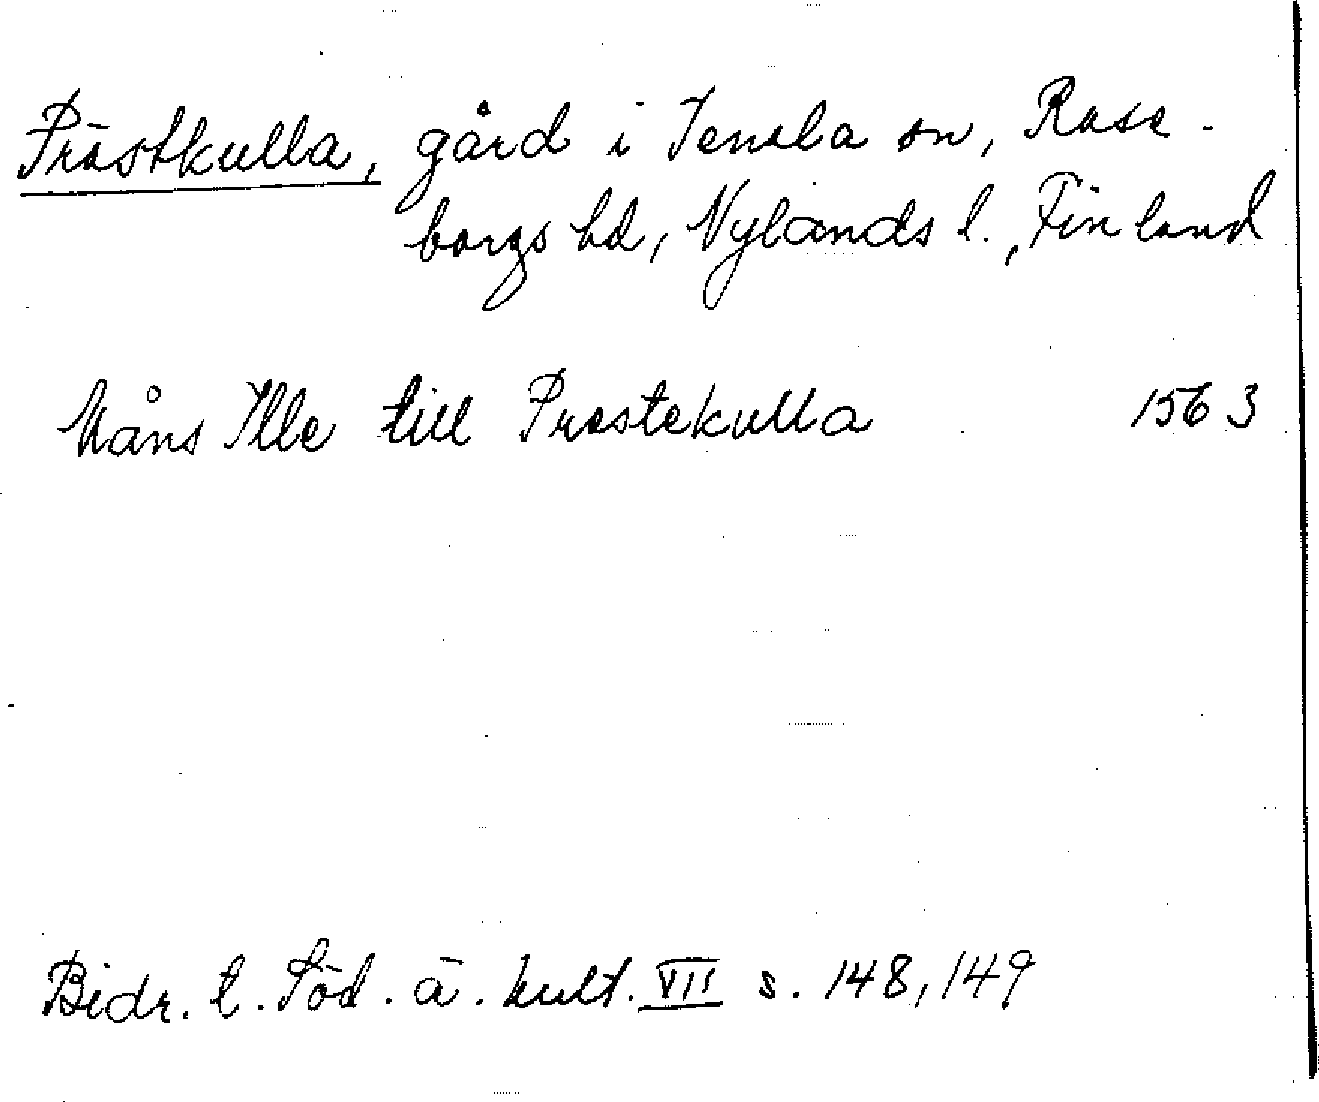 Prästkulla, gård i Tenala sn, Rase-
borgs hd, Nylands l., Finland
Måns Ille till Prestekulla 1563
Bidr. t. Söd. ä. kult. VII s. 148, 149